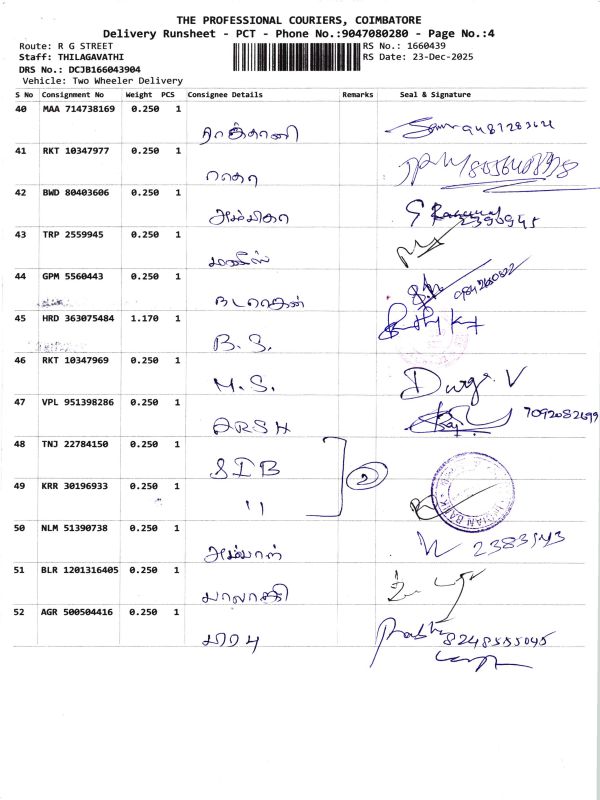 THE PROFESSIONAL COURIERS, COIMBATORE
Delivery Runsheet - PCT - Phone No.:9047080280 - Page No.:4
Route: R G STREET
RS No.: 1660439
Staff: THILAGAVATHI
RS Date: 23-Dec-2025
DRS No.: DCJB166043904
Vehicle: Two Wheeler Delivery
S No Consignment No Weight PCS Consignee Details Remarks Seal & Signature
40 MAA 714738169 0.250 1
41 RKT 10347977 0.250 1
42 BWD 80403606 0.250 1
அம்பிகா
43 TRP 2559945 0.250 1
2390945
44 GPM 5560443 0.250 1
நடராஜன்
45 HRD 363075484 1.170 1
B.S.
46 RKT 10347969 0.250 1
M.S. Durga V
47 VPL 951398286 0.250 1
ARSH 7092082699
48 TNJ 22784150 0.250 1
SIB
2
49 KRR 30196933 0.250 1
"
50 NLM 51390738 0.250 1
அம்பாள் 2383543
51 BLR 1201316405 0.250 1
பாலாஜி
52 AGR 500504416 0.250 1
பிரபு Prabhu 8248555045